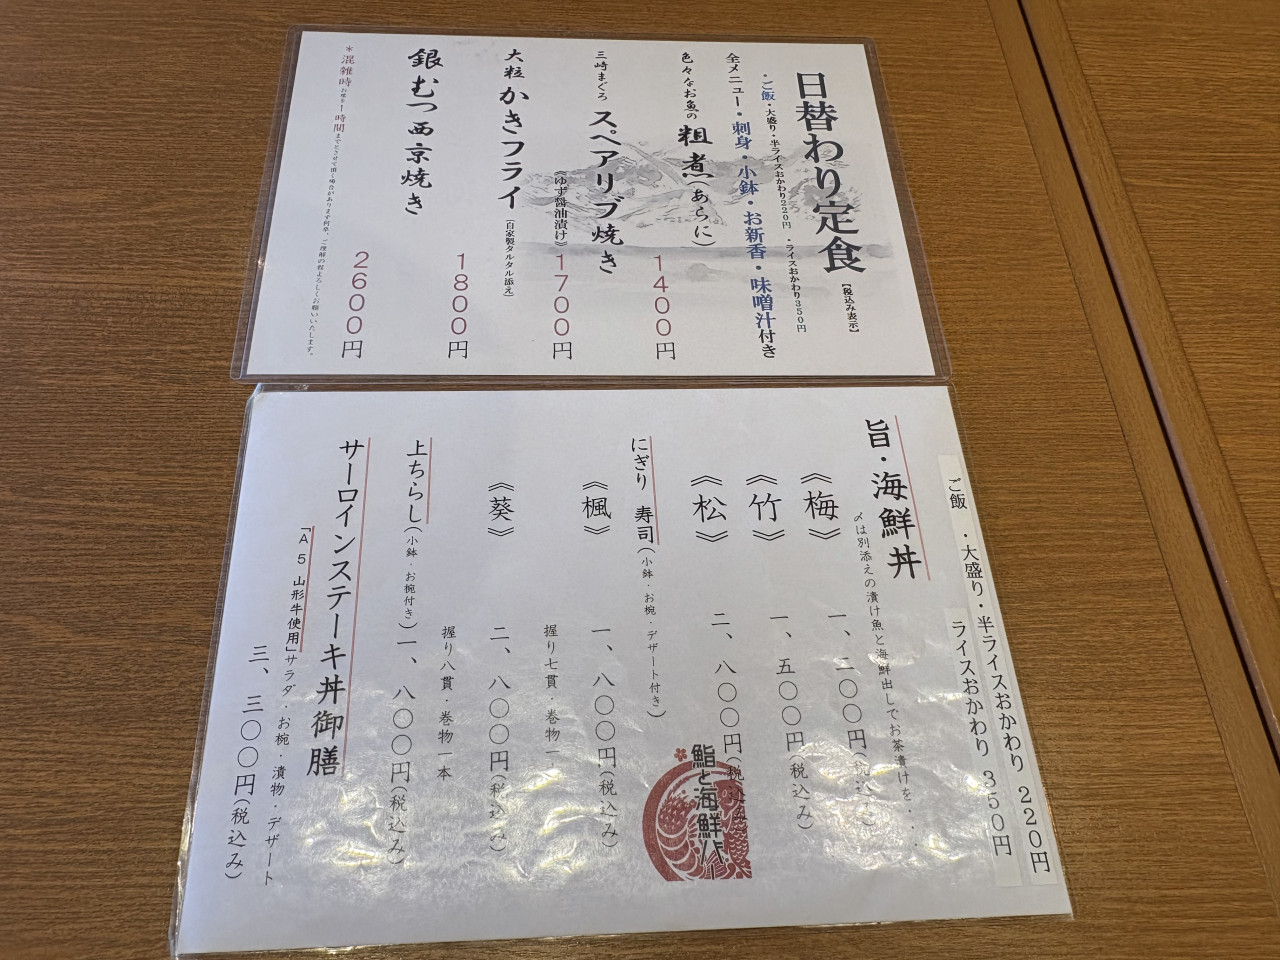 日替わり定食
【税込み表示】
・ご飯・大盛り・半ライスおかわり220円 ・ライスおかわり350円
全メニュー・刺身・小鉢・お新香・味噌汁付き
色々なお魚の 粗煮(あらに)
1400円
三崎まぐろ スペアリブ焼き
《ゆず醤油漬け》
1700円
大粒 かきフライ
(自家製タルタル添え)
1800円
銀むつ西京焼き
2600円
*混雑時お席を1時間までとさせて頂く場合があります何卒、ご理解の程よろしくお願いいたします。
ご飯 ・大盛り・半ライスおかわり 220円
ライスおかわり 350円
旨・海鮮丼
〆は別添えの漬け魚と海鮮出しでお茶漬けを・・・
《梅》 一、二〇〇円(税込み)
《竹》 一、五〇〇円(税込み)
《松》 二、八〇〇円(税込み)
にぎり 寿司(小鉢・お椀・デザート付き)
《楓》 一、八〇〇円(税込み)
握り七貫・巻物一
《葵》 二、八〇〇円(税込み)
握り八貫・巻物一本
上ちらし(小鉢・お椀付き)一、八〇〇円(税込み)
サーロインステーキ丼御膳
「A5 山形牛使用」サラダ・お椀・漬物・デザート
三、三〇〇円(税込み)
鮨と海鮮バー